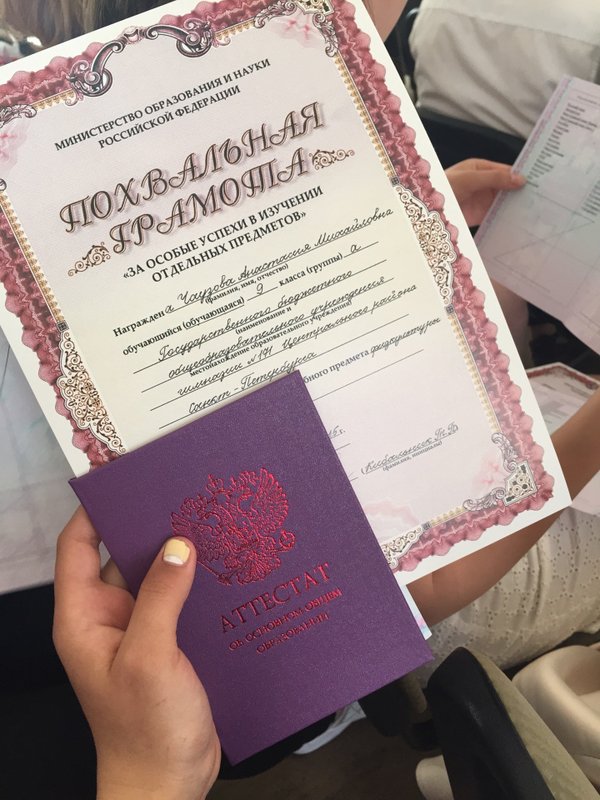 МИНИСТЕРСТВО ОБРАЗОВАНИЯ И НАУКИ
РОССИЙСКОЙ ФЕДЕРАЦИИ
ПОХВАЛЬНАЯ
ГРАМОТА
«ЗА ОСОБЫЕ УСПЕХИ В ИЗУЧЕНИИ
ОТДЕЛЬНЫХ ПРЕДМЕТОВ»
Награжден а Чаузова Анастасия Михайловна
(фамилия, имя, отчество)
обучающийся (обучающаяся) 9 класса (группы) а
Государственного бюджетного
(наименование и
общеобразовательного учреждения
местонахождение образовательного учреждения)
гимназии №171 Центрального района
Санкт-Петербурга
бного предмета физкультура
(фамилия, инициалы)
АТТЕСТАТ
ОБ ОСНОВНОМ ОБЩЕМ
ОБРАЗОВАНИИ